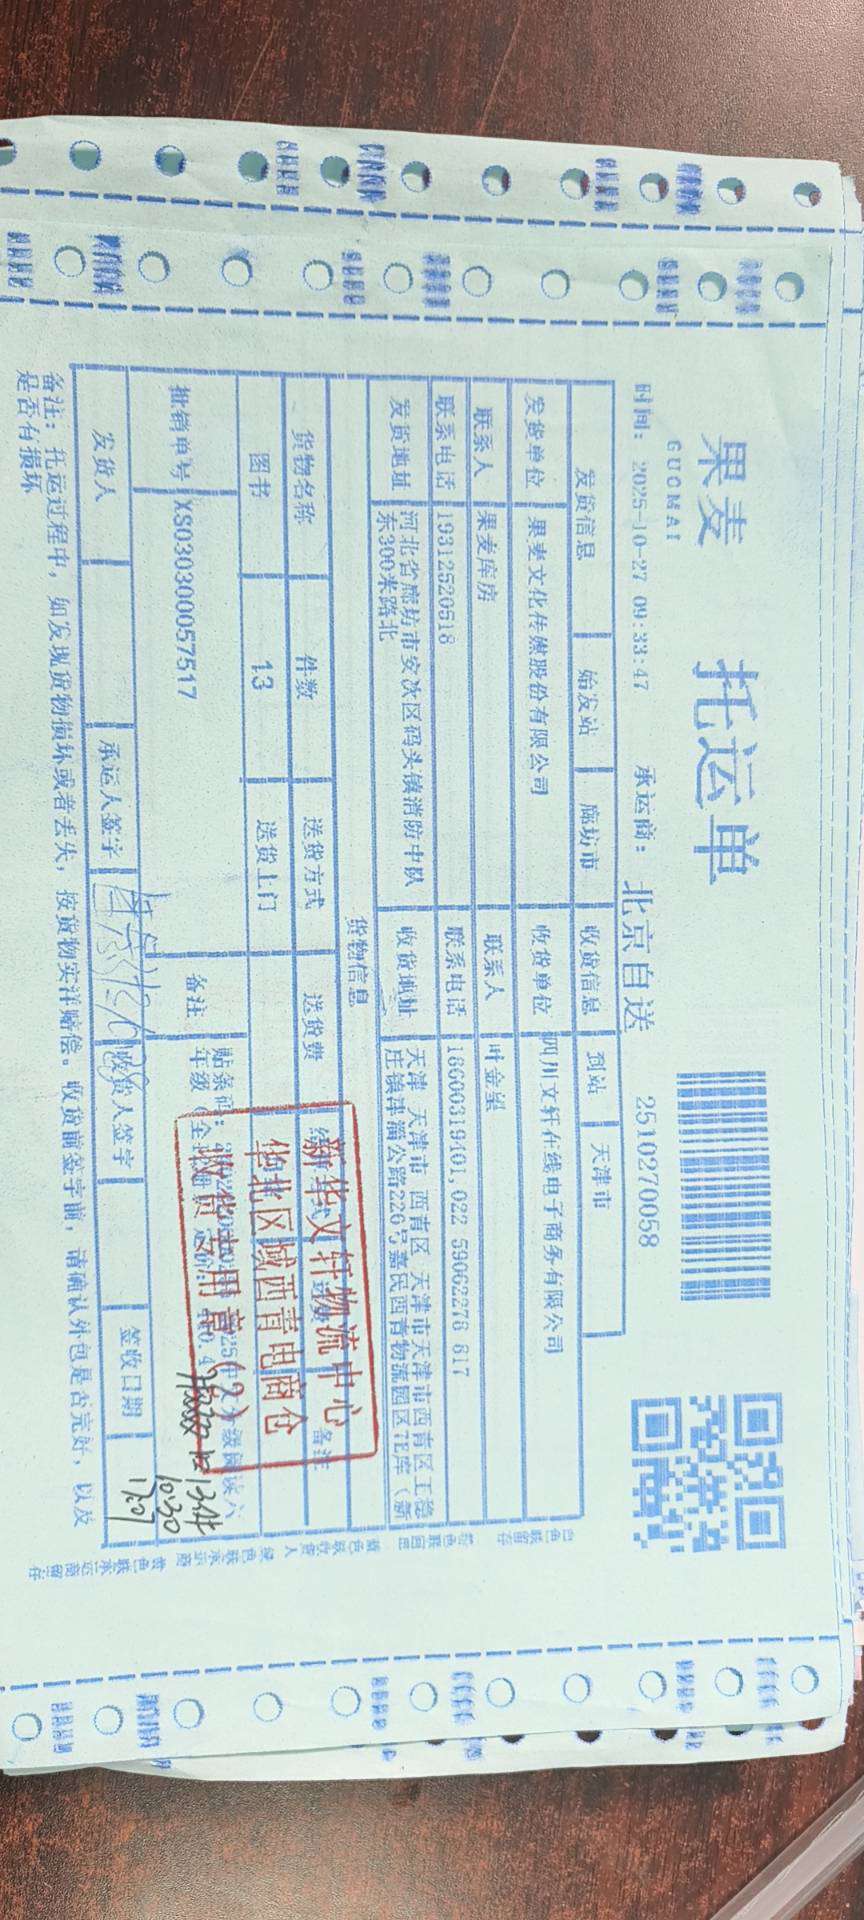 果麦
GUOMAI
托运单
时间：2025-10-27 09:33:47 承运商：北京自送 2510270058
发货信息 始发站 廊坊市 收货信息 到站 天津市
发货单位 果麦文化传媒股份有限公司 收货单位 四川文轩在线电子商务有限公司
联系人 果麦库房 联系人 叶金星
联系电话 19312520518 联系电话 18600319401,022 59062278 817
发货地址 河北省廊坊市安次区码头镇消防中队
东300米路北
收货地址 天津 天津市 西青区 天津市天津市西青区王稳
庄镇津淄公路226号嘉民西青物流园区7E库（新
货物信息
货物名称 件数 送货方式 送货费 备注
图书 13 送货上门
批销单号 XS030300057517 备注 贴条码：
年级（全
级阅读六
新华文轩物流中心
华北区域西青电商仓
收货专用章(2)
13件
10:30
17:07
发货人 承运人签字 收货人签字 签收日期
备注：托运过程中，如发现货物损坏或者丢失，按货物实洋赔偿。收货前签字前，请确认外包是否完好，以及
是否有损坏
白色联留存